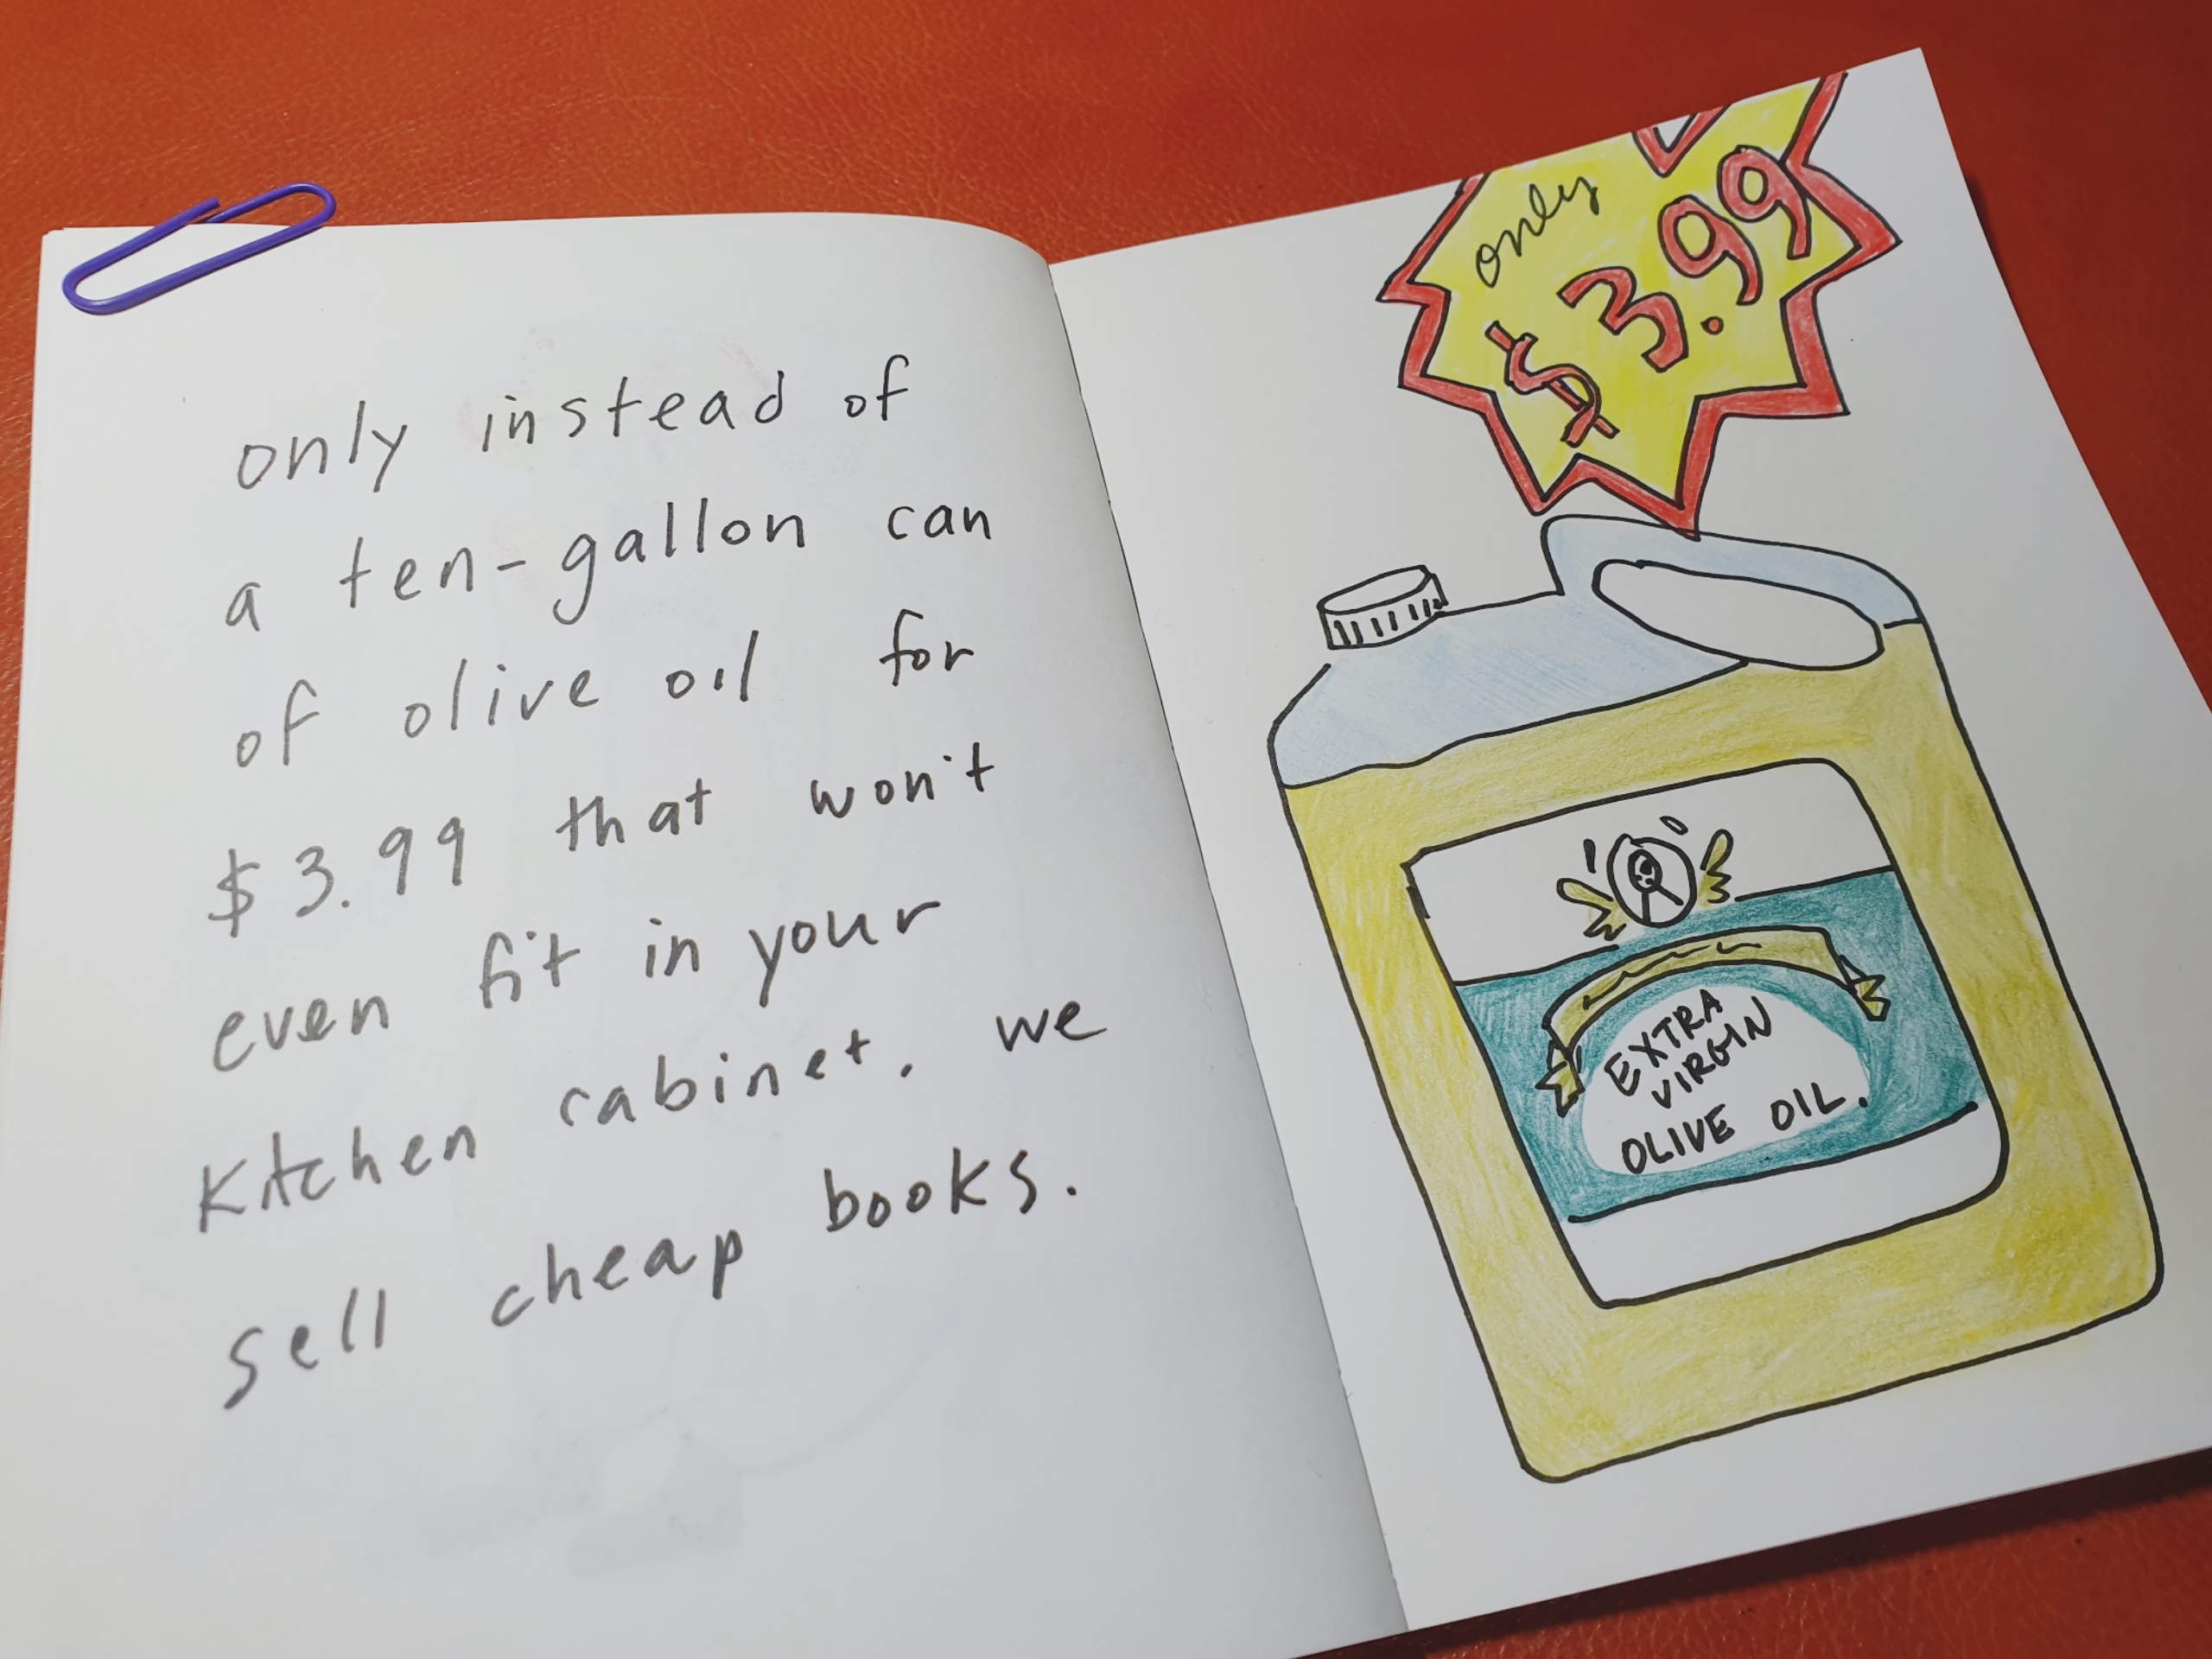 only instead of
a ten-gallon can
of olive oil for
$3.99 that won't
even fit in your
kitchen cabinet. we
sell cheap books.
only
$3.99
EXTRA
VIRGIN
OLIVE OIL.